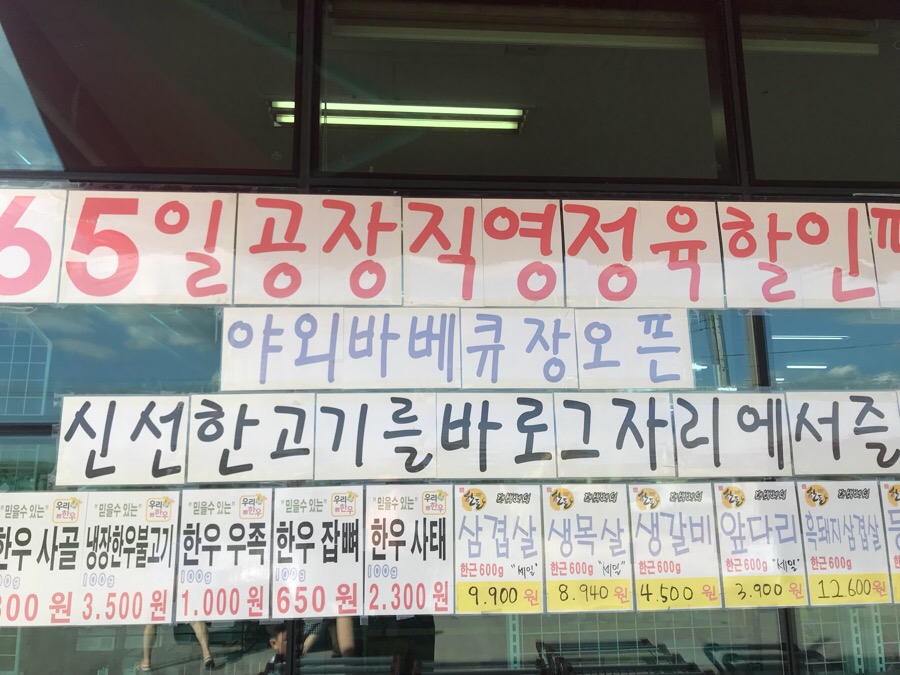 65일공장직영정육할인
야외바베큐장오픈
신선한고기를바로그자리에서즐
"믿을수 있는" 우리한우 "믿을수 있는" 우리한우 "믿을수 있는" 우리한우 "믿을수 있는" 우리한우 "믿을수 있는" 우리한우
한우 사골 냉장한우불고기 한우 우족 한우 잡뼈 한우 사태 삼겹살 생목살 생갈비 앞다리 흑돼지삼겹살
100g 100g 100g 100g 한근600g "세일" 한근600g "세일" 한근600g 한근600g "세일" 한근600g
800 원 3.500 원 1.000 원 650 원 2.300 원 9.900 원 8.940 원 4.500 원 3.900 원 12600 원